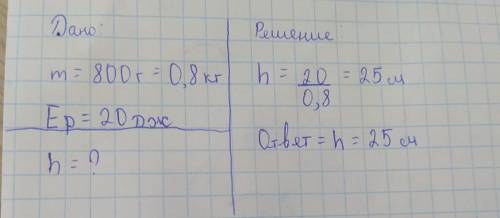 Дано:
m = 800г = 0,8кг
Ep = 20дж
h = ?
Решение:
h = 20/0,8 = 25м
Ответ = h = 25м